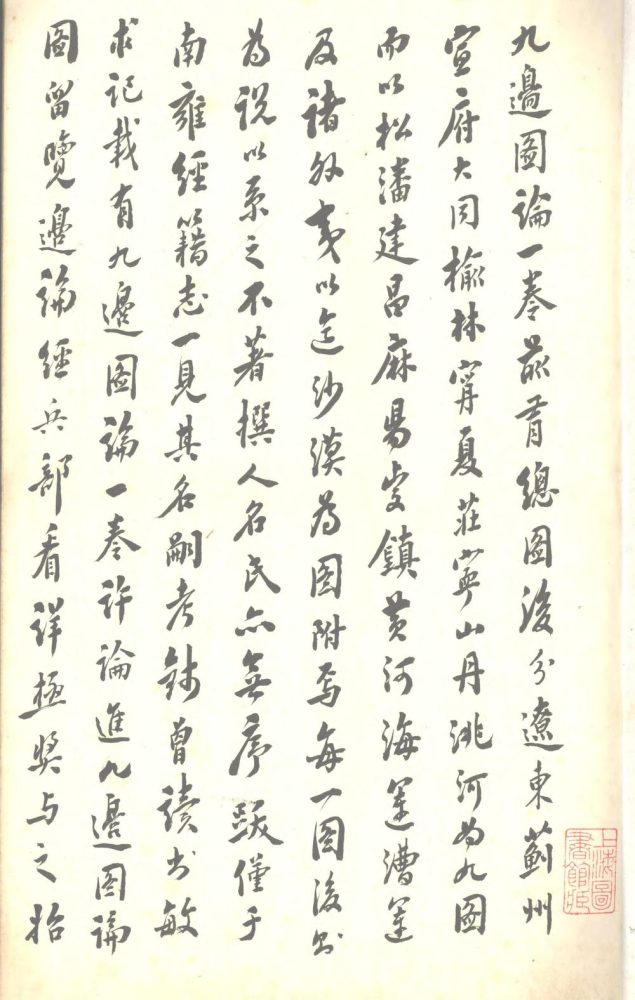 九邊圖論一卷前有總圖後分遼東薊州
宣府大同榆林甯夏莊寧山丹洮河為九圖
而以松潘建昌麻陽虔鎮黃河海運漕運
及諸外夷以迄沙漠為圖附焉每一圖後則
為說以系之不著撰人名氏亦無序跋僅于
南雍經籍志一見其名嗣考錢曾讀書敏
求記載有九邊圖論一卷許論進九邊圖論
圖留覽邊論經兵部看詳極獎與之始
上海圖書館藏